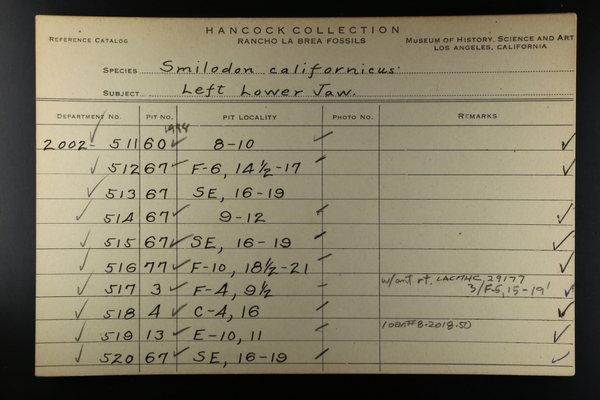 HANCOCK COLLECTION
REFERENCE CATALOG RANCHO LA BREA FOSSILS MUSEUM OF HISTORY, SCIENCE AND ART
LOS ANGELES, CALIFORNIA
SPECIES Smilodon californicus.
SUBJECT Left Lower Jaw.
DEPARTMENT NO. PIT NO. PIT LOCALITY PHOTO NO. REMARKS
2002- 511 60 8-10
512 67 F-6, 14½-17
513 67 SE, 16-19
514 67 9-12
515 67 SE, 16-19
516 77 F-10, 18½-21
517 3 F-4, 9½ w/ant rt. LACMHC 29177
3/F-5, 15-19'
518 4 C-4, 16
519 13 E-10, 11 loan#8-2018-50
520 67 SE, 16-19